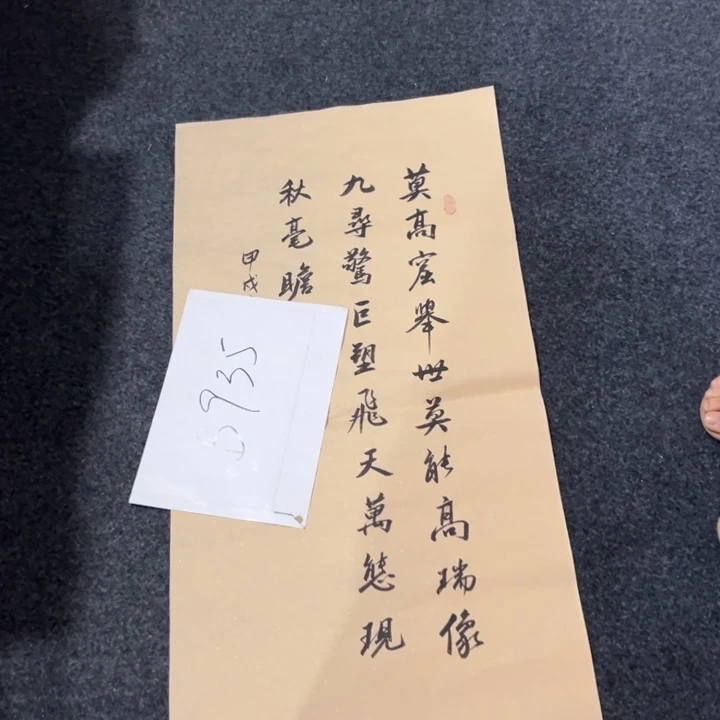 莫高窟舉世莫能高瑞像
九尋驚巨塑飛天萬態現
秋毫瞻
甲戌
5935